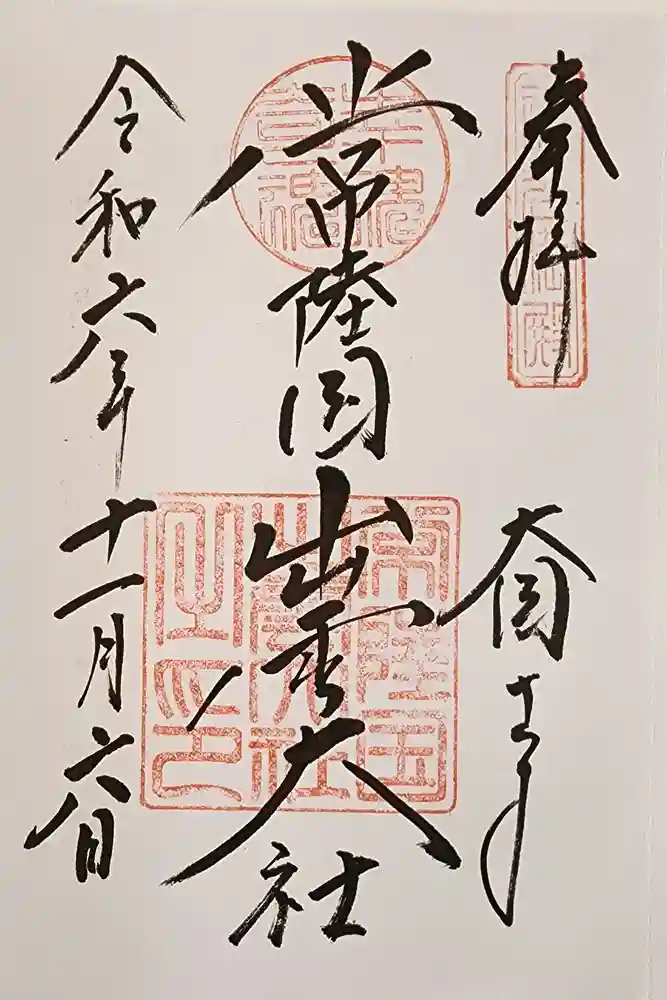 奉拝
大国
常陸国出雲大社
令和六年十一月六日
常陸国
出雲大社
之印